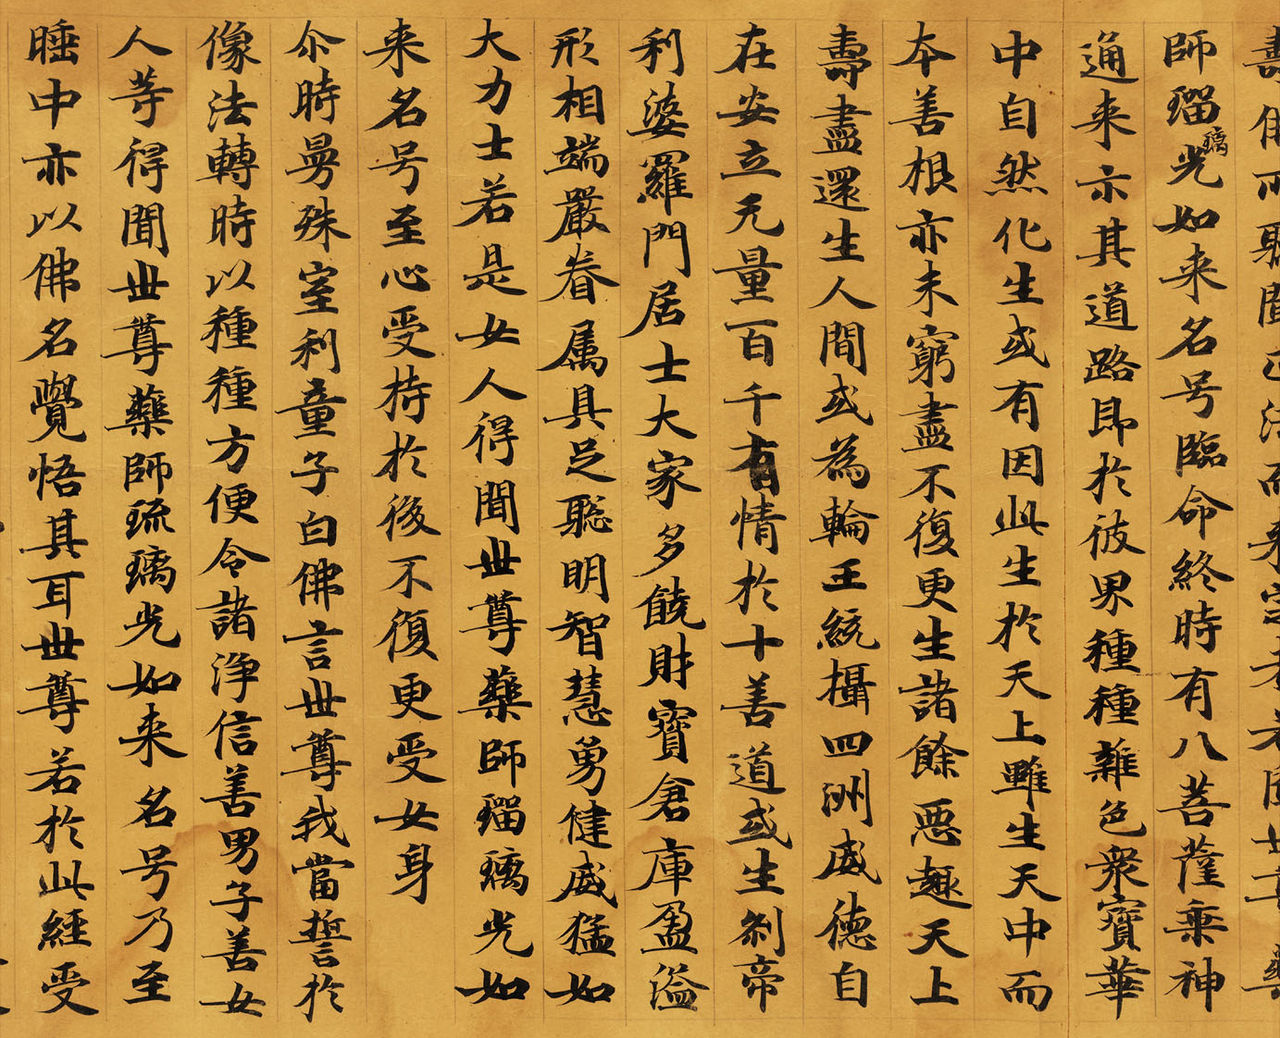 師瑠璃光如来名号臨命終時有八菩薩乗神
通来示其道路即於彼界種種雜色衆寶華
中自然化生或有因此生於天上雖生天中而
夲善根亦未窮盡不復更生諸餘惡趣天上
壽盡還生人間或為輪王統攝四洲威德自
在安立无量百千有情於十善道或生刹帝
利婆羅門居士大家多饒財寶倉庫盈溢
形相端嚴眷属具足聡明智慧勇健威猛如
大力士若是女人得聞世尊藥師瑠璃光如
来名号至心受持於後不復更受女身
尒時曼殊室利童子白佛言世尊我當誓於
像法轉時以種種方便令諸浄信善男子善女
人等得聞世尊藥師琉璃光如来名号乃至
睡中亦以佛名覺悟其耳世尊若於此經受